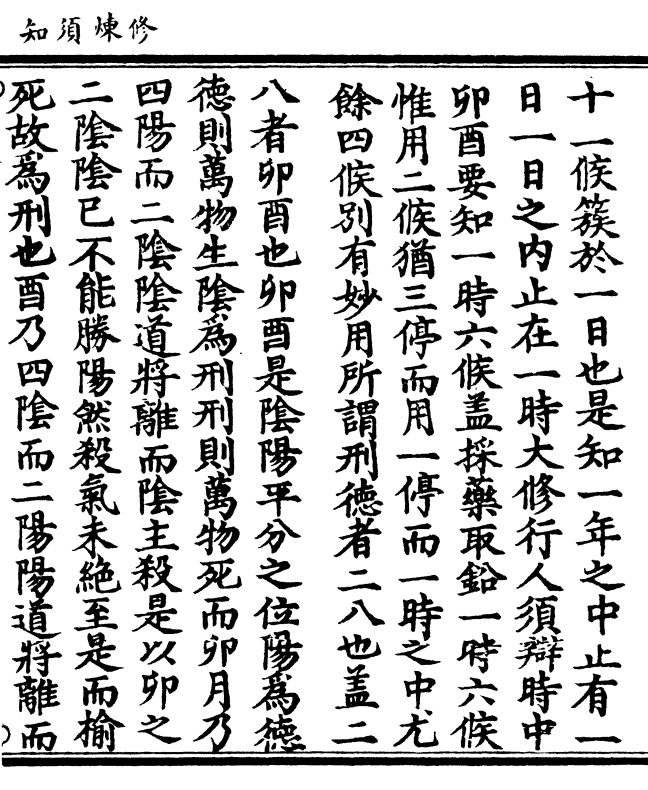 修煉須知
十一候簇於一日也是知一年之中止有一
日一日之内止在一時大修行人須辯時中
卯酉要知一時六候盖採藥取鉛一時六候
惟用二候猶三停而用一停而一時之中尤
餘四候别有妙用所謂刑德者二八也盖二
八者卯酉也卯酉是陰陽平分之位陽爲德
德則萬物生陰爲刑刑則萬物死而卯月乃
四陽而二陰陰道將離而陰主殺是以卯之
二陰陰已不能勝陽然殺氣未絶至是而榆
死故爲刑也酉乃四陰而二陽陽道將離而